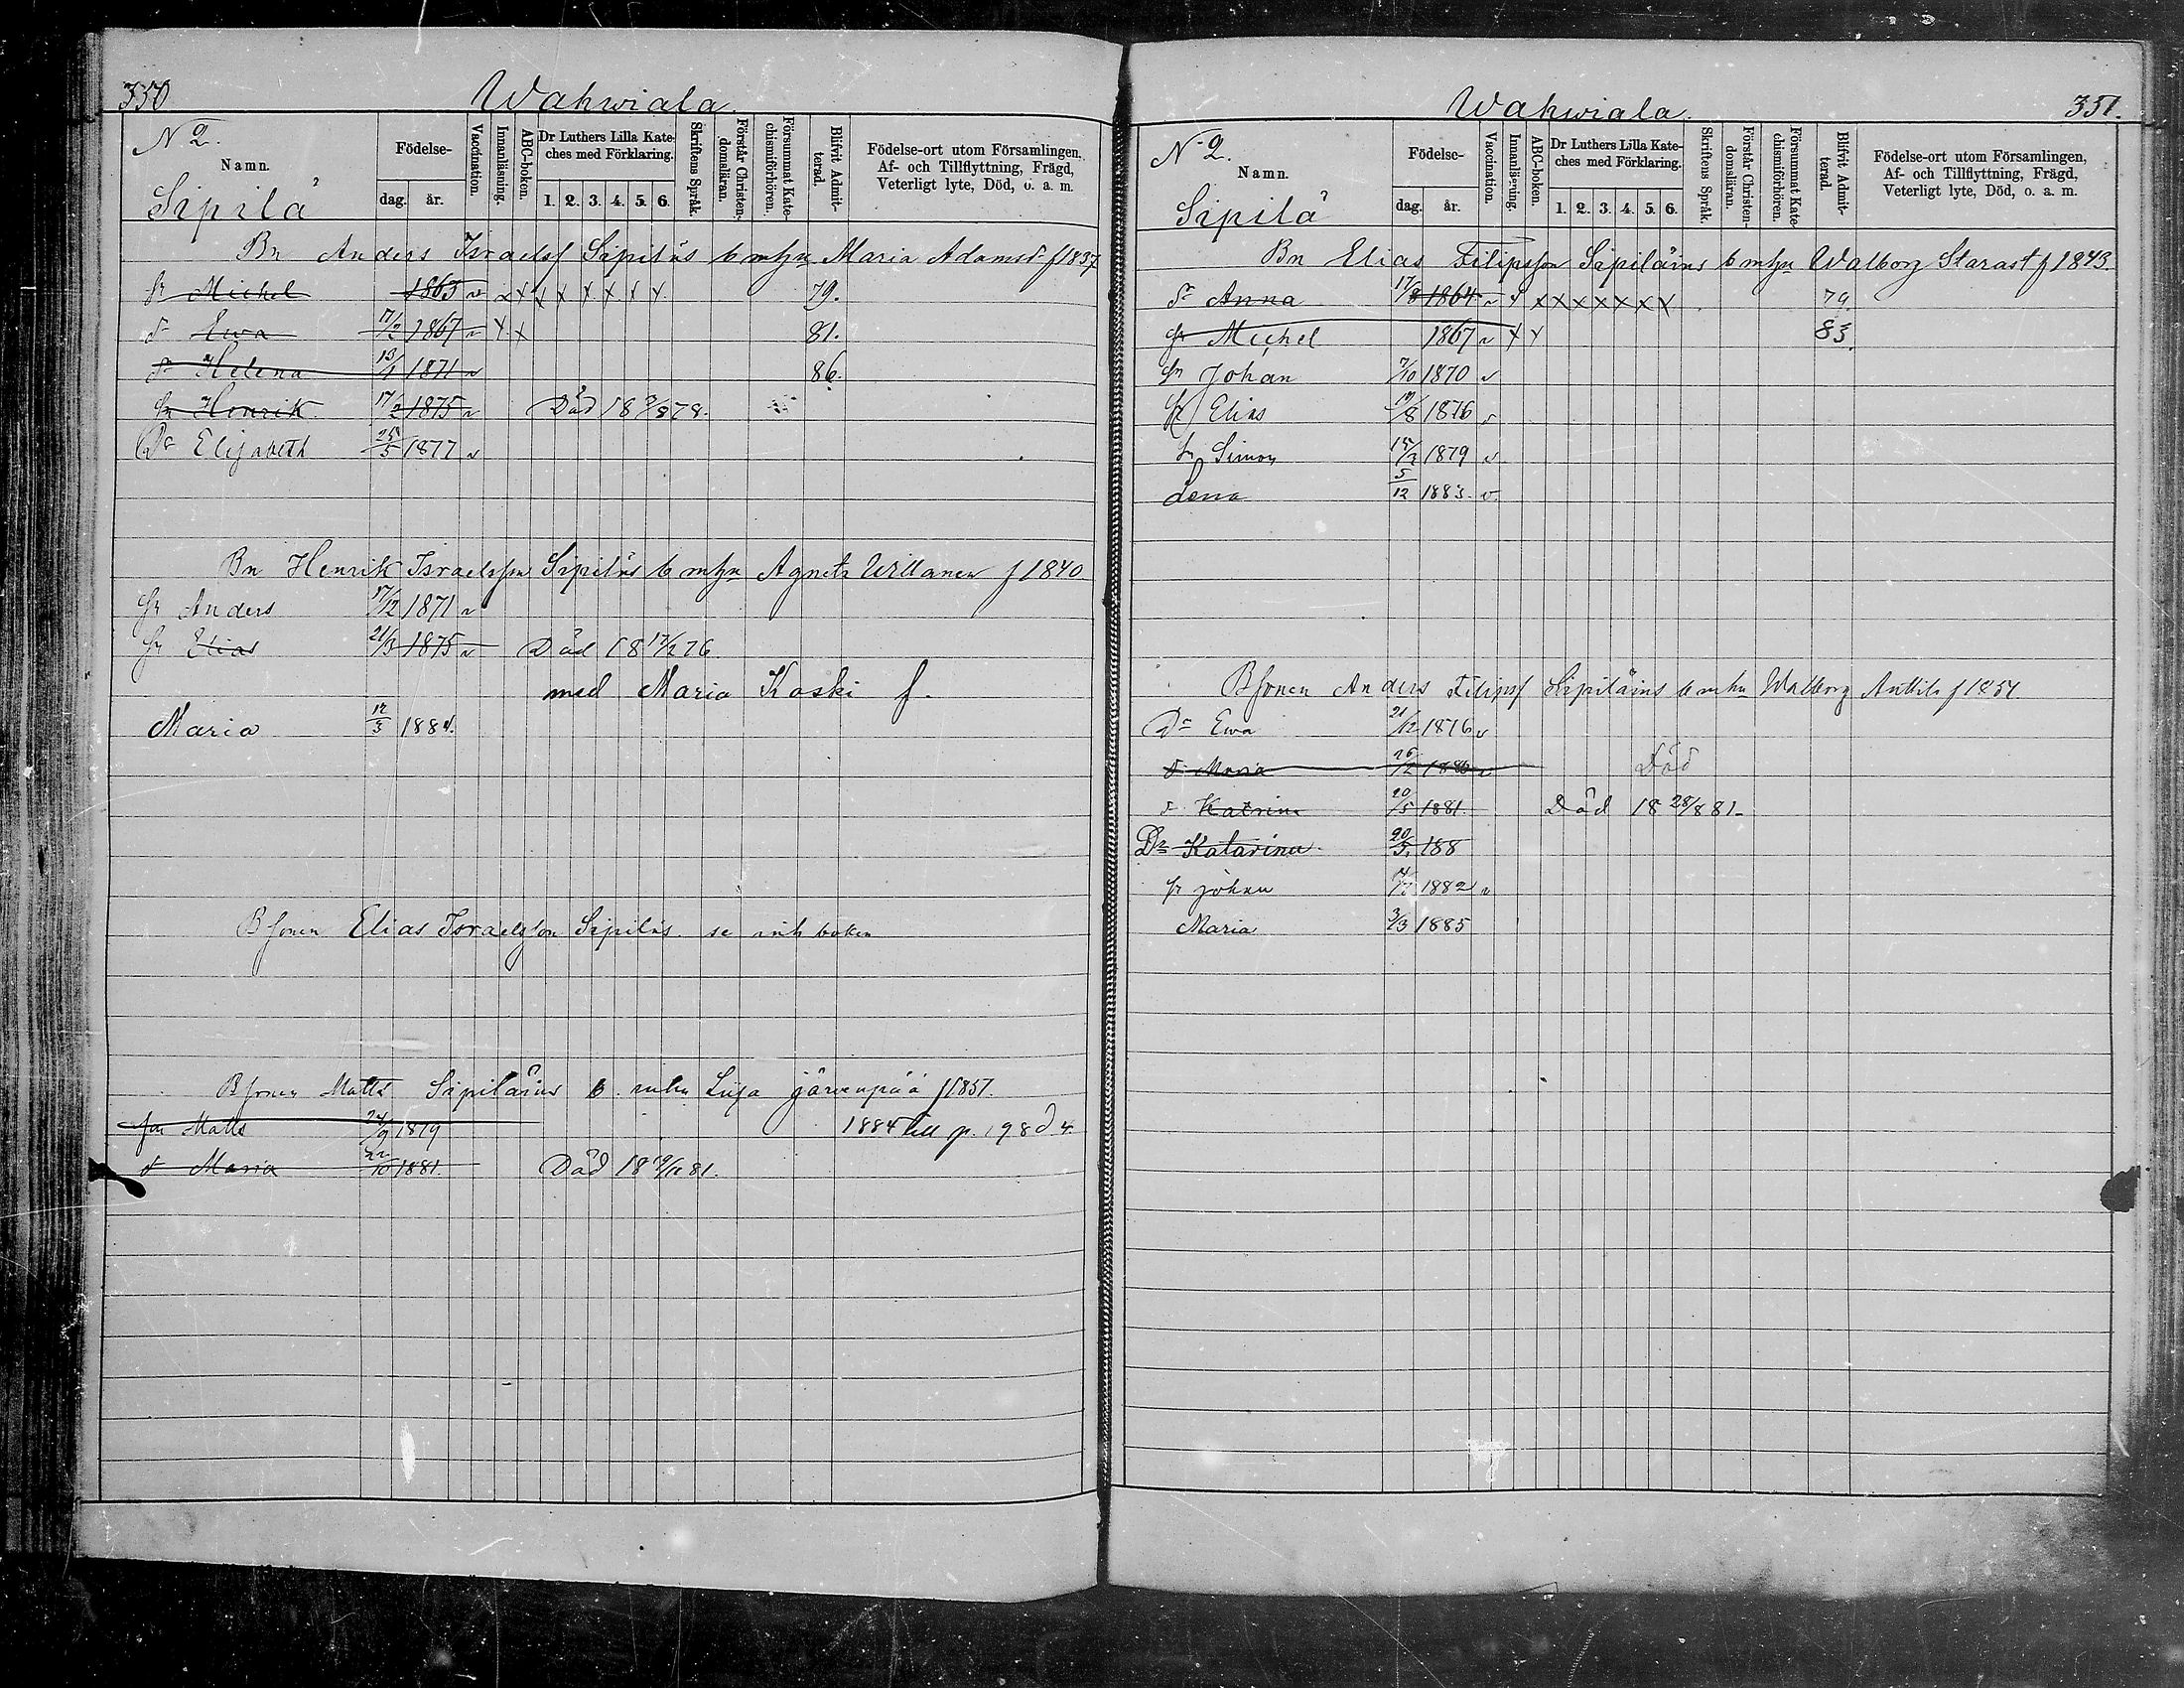 350 Wahwiala
N 2.
Namn.
Födelse-
dag. år.
Vaccination.
Innanläsning.
ABC-boken.
Dr Luthers Lilla Kate-
ches med Förklaring.
1. 2. 3. 4. 5. 6.
Skriftens Språk.
Förstår Christen-
domsläran.
Försummat Kate-
chismiförhören.
Blifvit Admit-
terad.
Födelse-ort utom Församlingen,
Af- och Tillflyttning, Frägd,
Veterligt lyte, Död, o. a. m.
Sipilä
Bn Anders Israelss Sipiläs b mhn Maria Adamsdr f 1837
sn Michel 1863 v x x x x x x x x 79.
dr Ewa 17/2 1867 v x x 81.
dr Helena 13/1 1871 v 86.
sn Henrik 17/2 1875 v Död 18 2/8 78.
Dr Elisabeth 25/5 1877 v
Bn Henrik Israelsson Sipiläs b mhn Agneta Willanen f 1840
sn Anders 17/12 1871 v
sn Elias 21/3 1875 v Död 18 17/2 76
med Maria Koski f.
Maria 12/3 1884.
Bsonen Elias Israelsson Sipiläs se boken
Bsonen Matts Sipiläins b mhn Liisa Järvenpää f 1851.
son Matts 24/9 1879 1884 till p. 198
d Maria 22/10 1881. Död 18 81.
Wahwiala. 351.
N 2.
Namn.
Födelse-
dag. år.
Vaccination.
Innanläsning.
ABC-boken.
Dr Luthers Lilla Kate-
ches med Förklaring.
1. 2. 3. 4. 5. 6.
Skriftens Språk.
Förstår Christen-
domsläran.
Försummat Kate-
chismiförhören.
Blifvit Admit-
terad.
Födelse-ort utom Församlingen,
Af- och Tillflyttning, Frägd,
Veterligt lyte, Död, o. a. m.
Sipilä
Bn Elias Filipsson Sipiläins b mhn Walborg Starast f 1843.
dr Anna 17/8 1864 v x x x x x x x x 79.
sn Michel 1867 v x x 83.
sn Johan 7/10 1870 v
sn Elias 19/8 1876 v
sn Simon 15/2 1879 v
Lena 5/12 1883. v.
Bsonen Anders Filipss Sipiläins b mhn Walborg Anttila f 1851
Dr Ewa 21/12 1876 v
d Maria 26/2 1880 v Död
d Katrina 20/5 1881. Död 18 28/8 81.
Dr Katarina 20/5. 188
sn Johan 1882 v
Maria 3/3 1885